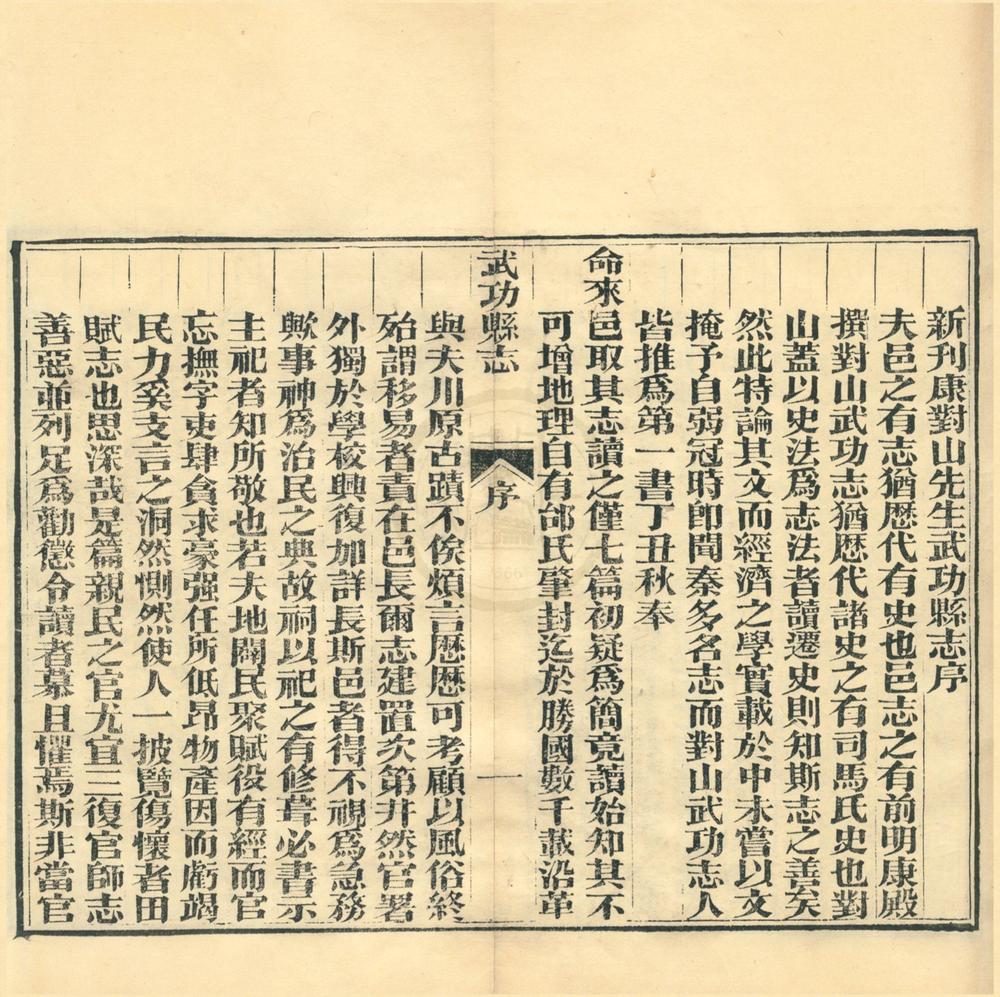 新刊康對山先生武功縣志序
夫邑之有志猶歷代有史也邑志之有前明康殿
撰對山武功志猶歷代諸史之有司馬氏史也對
山蓋以史法爲志法者讀遷史則知斯志之善矣
然此特論其文而經濟之學實載於中未嘗以文
掩予自弱冠時卽聞秦多名志而對山武功志人
皆推爲第一書丁丑秋奉
命來邑取其志讀之僅七篇初疑爲簡竟讀始知其不
可增地理自有邰氏肇封迄於勝國數千載沿革
武功縣志
序
一
與夫川原古蹟不俟煩言歷歷可考顧以風俗終
殆謂移易者責在邑長爾志建置次第井然官署
外獨於學校興復加詳長斯邑者得不視爲急務
歟事神爲治民之典故祠以祀之有修葺必書示
主祀者知所敬也若夫地闢民聚賦役有經而官
忘撫字吏肆貪求豪强任所低昂物產因而虧竭
民力奚支言之洞然惻然使人一披覽傷懷者田
賦志也思深哉是篇親民之官尤宜三復官師志
善惡並列足爲勸懲令讀者慕且懼焉斯非當官